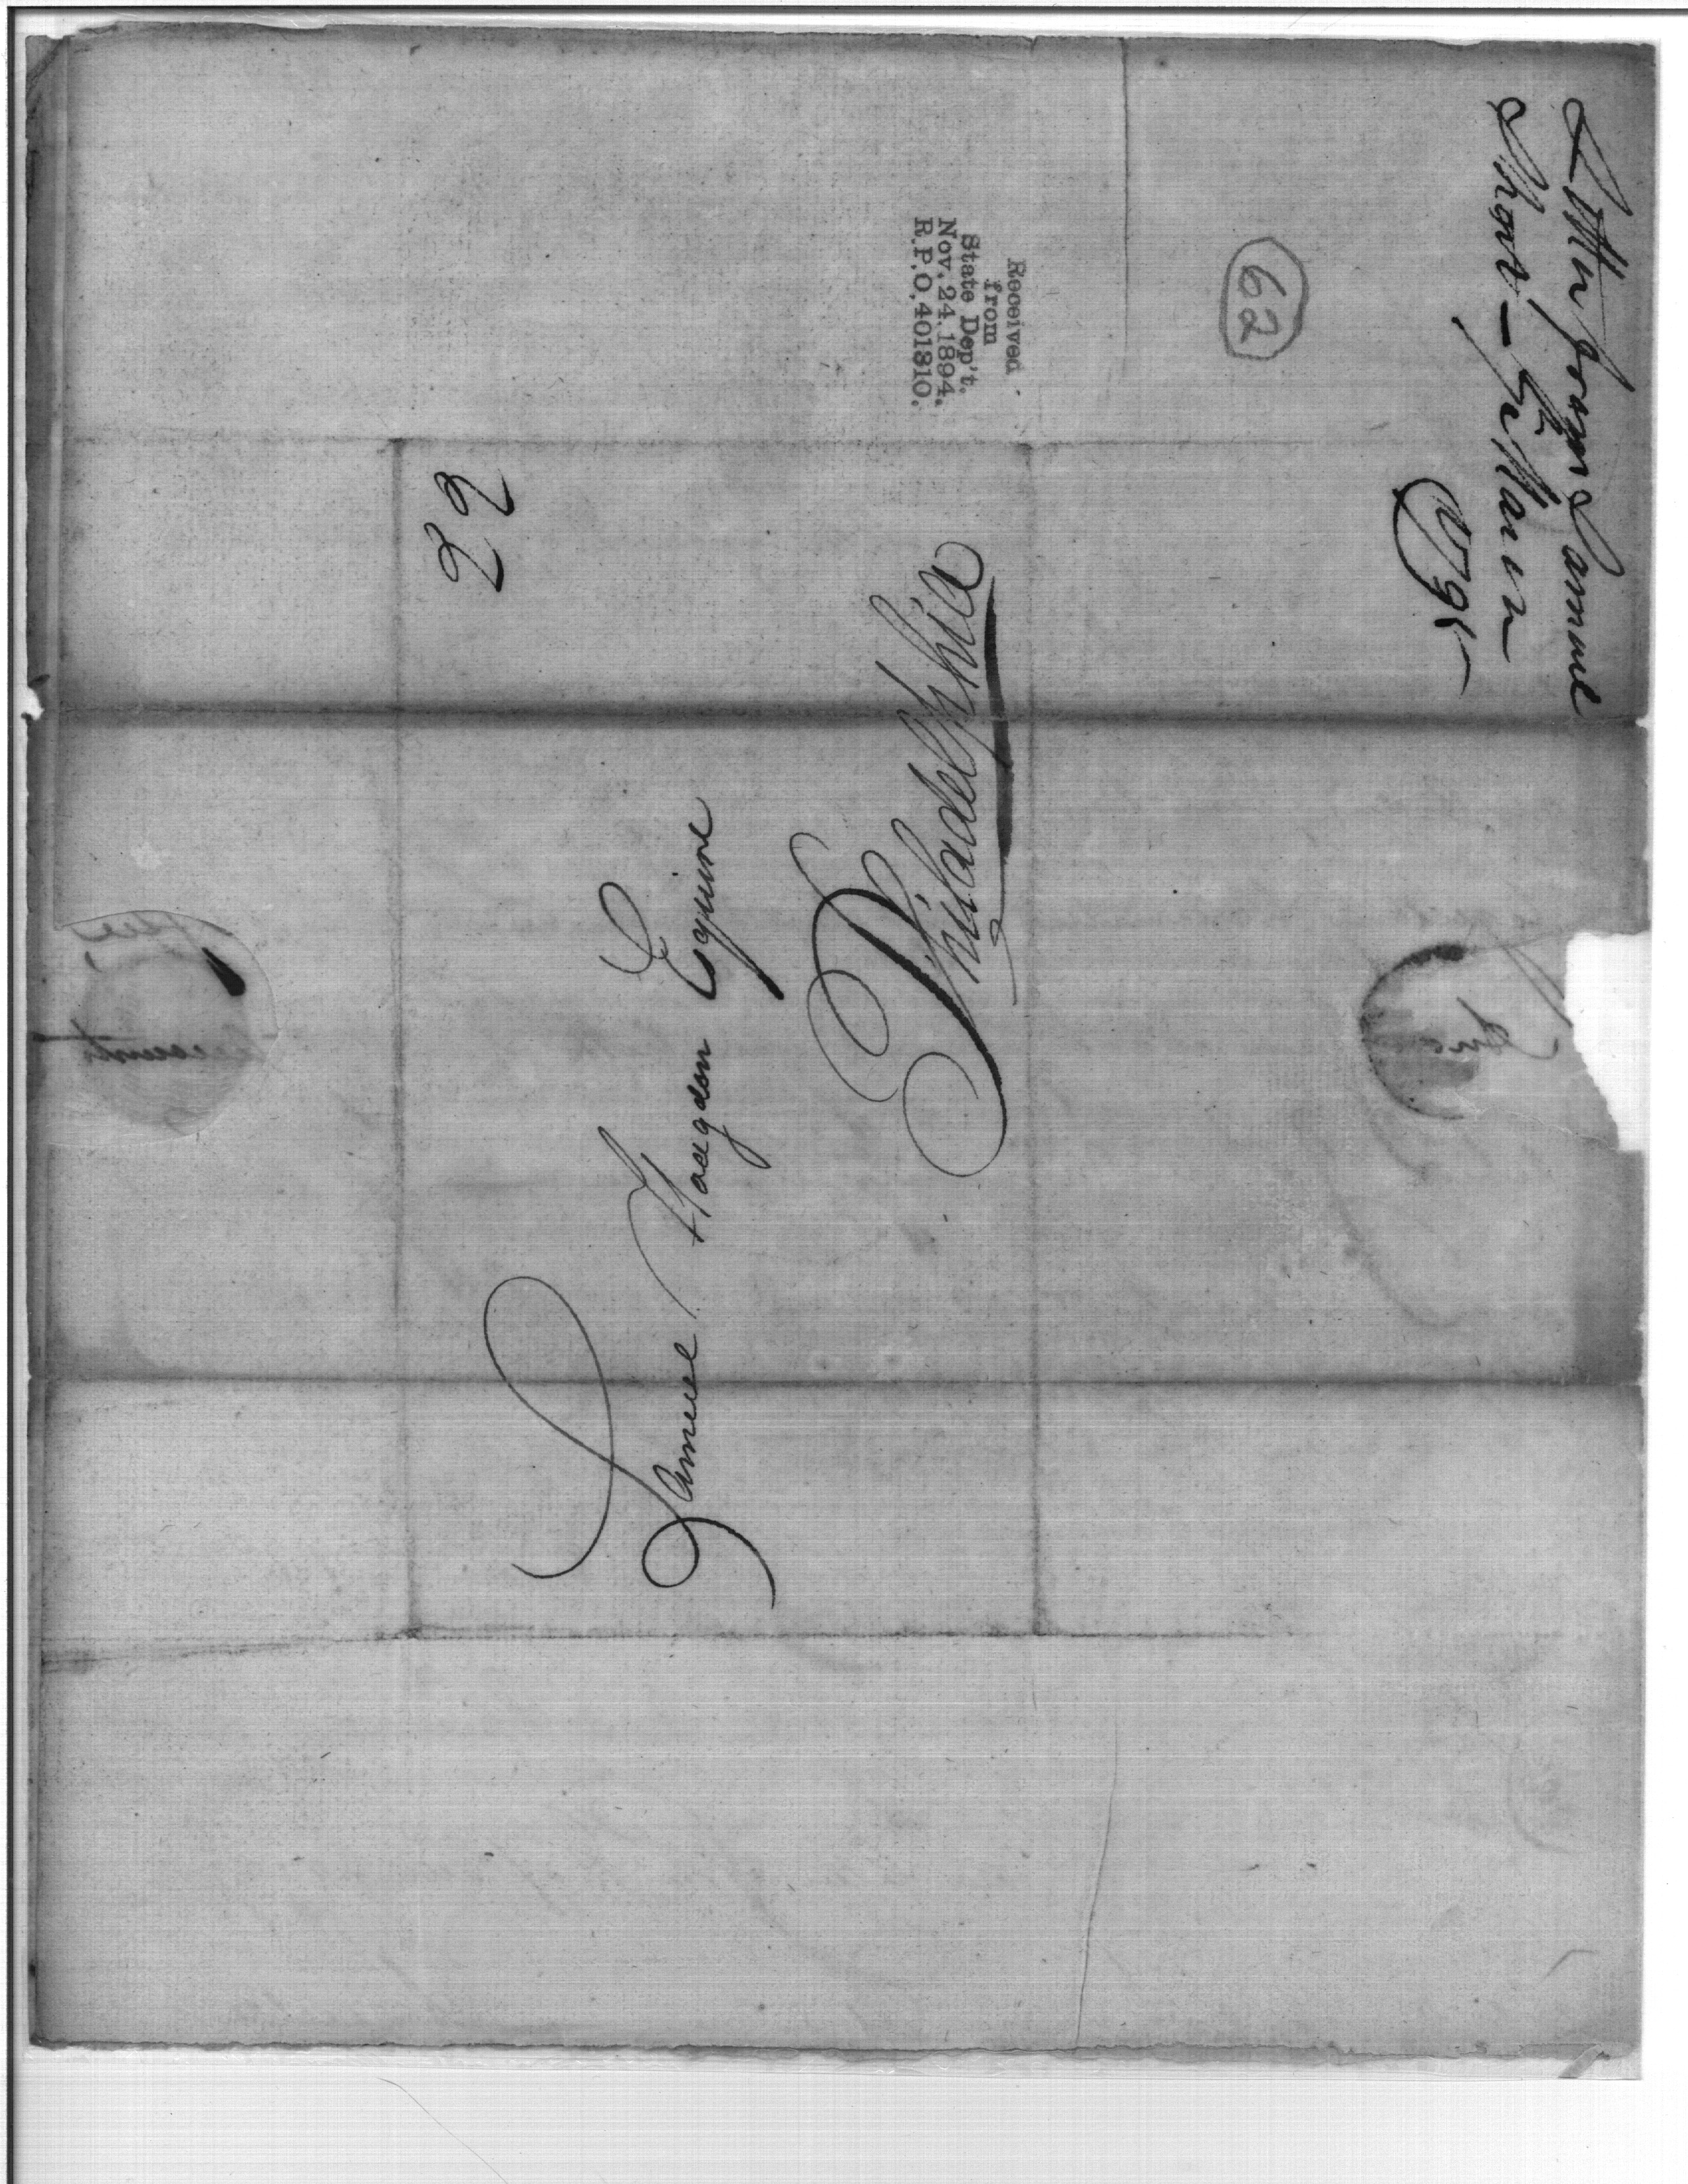 Letter from Samuel
Short — 
1795
62
Received
from
State Dep't.
Nov. 24. 1894.
R.P.O. 401310.
22
Samuel Hodgdon Esquire
Philadelphia